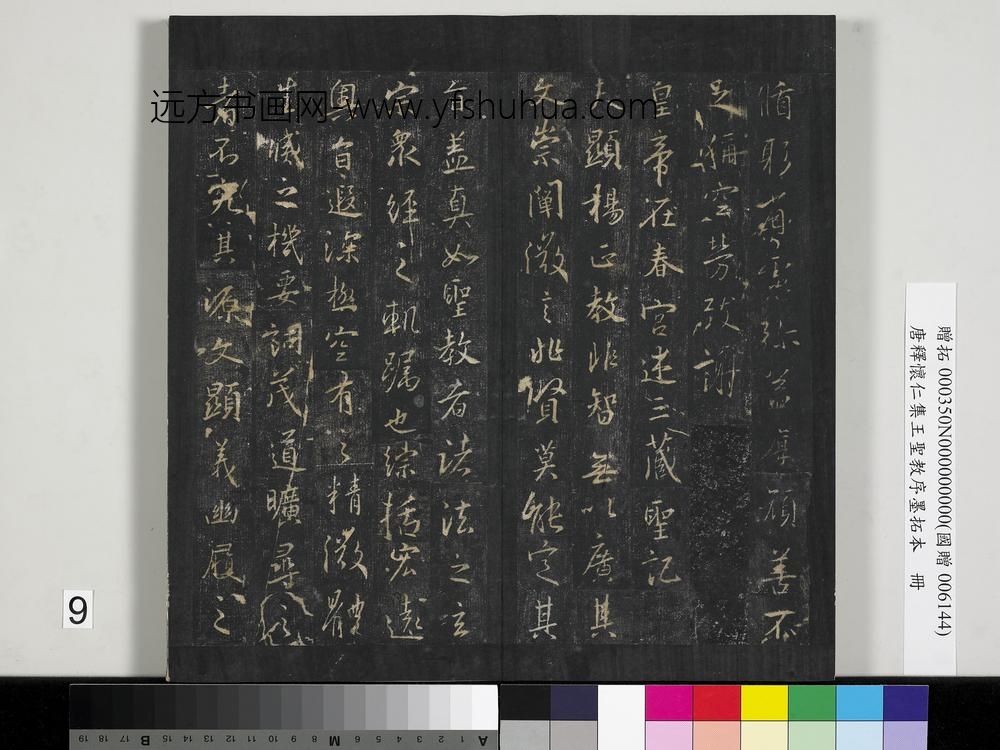 循躬省慮弥益厚顏善不
足稱空勞致謝
皇帝在春宮述三藏聖記
夫顯揚正教非智無以廣其
文崇闡微言非賢莫能定其
旨蓋真如聖教者諸法之玄
宗衆經之軌躅也綜括宏遠
奧旨遐深極空有之精微體
生滅之機要詞茂道曠尋之
者不究其源文顯義幽履之
远方书画网 www.yfshuhua.com
贈拓 000350N000000000(國贈 006144)
唐釋懷仁集王聖教序墨拓本 冊
9
19 18 17 16 15 B 14 13 12 11 10 9 8 M 6 5 4 3 2 1 A